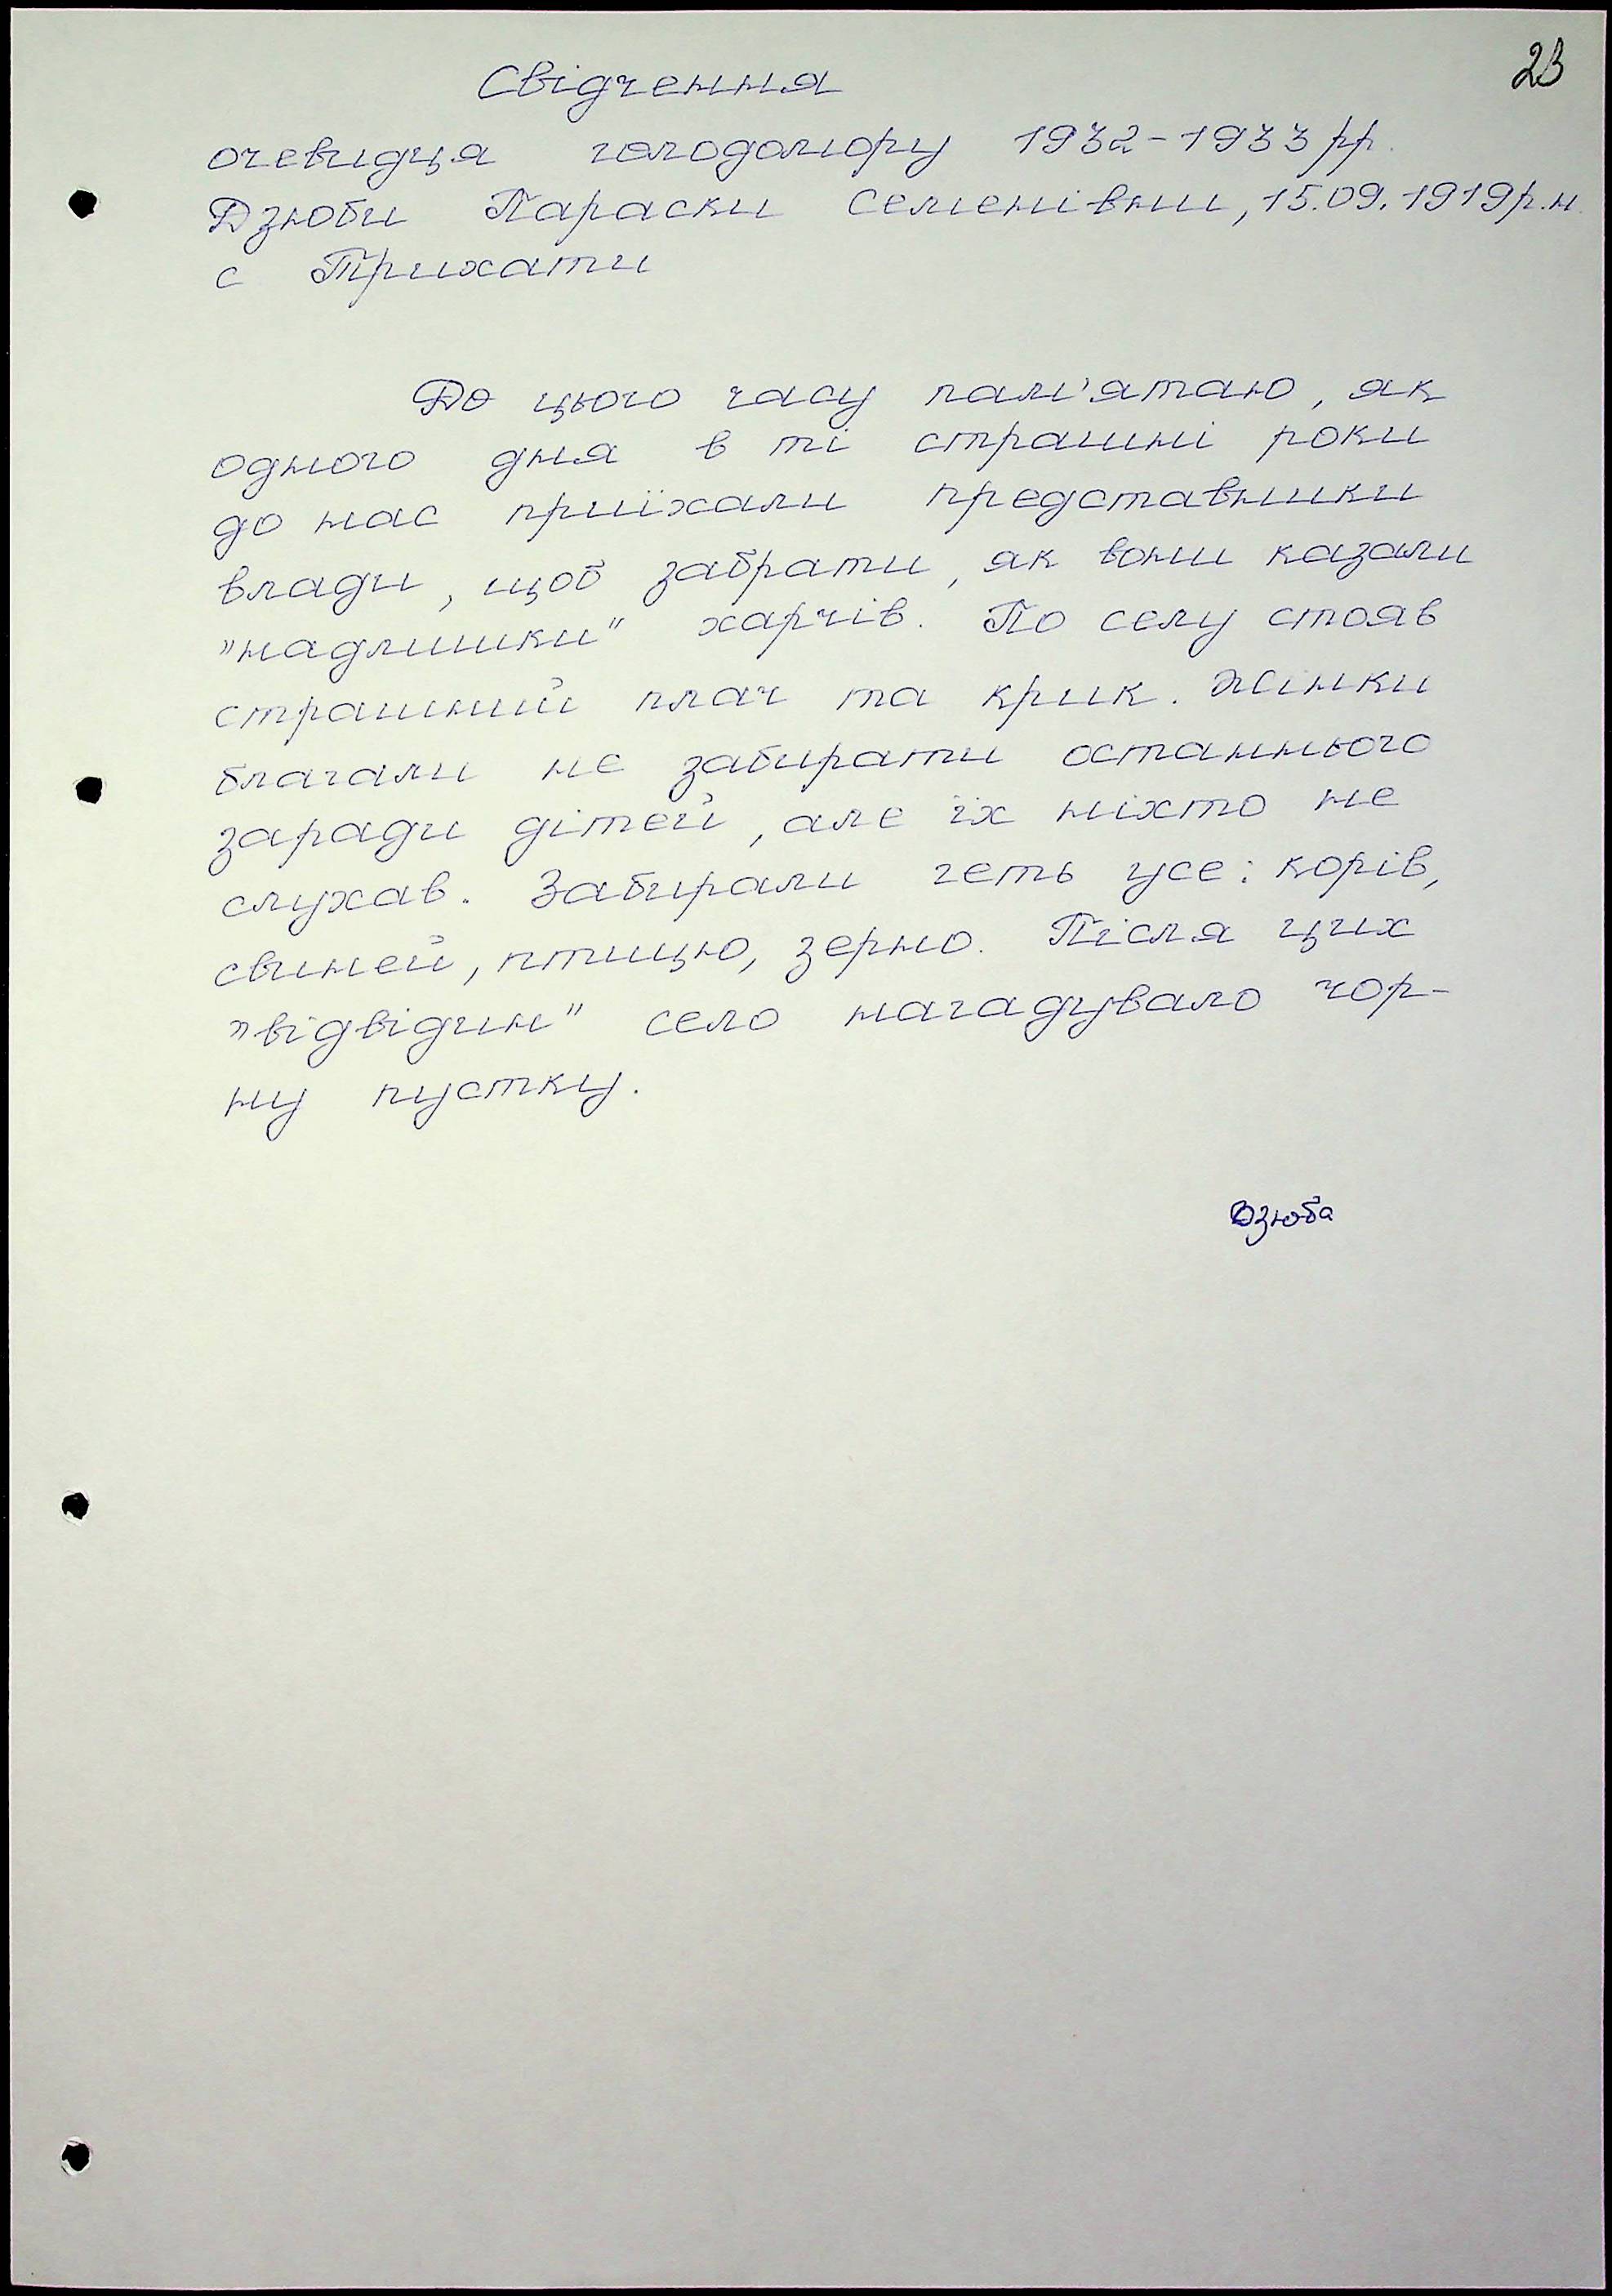 23
Свідчення
очевидця голодомору 1932-1933 рр.
Дзюби Параски Семенівни, 15.09.1919 р.н.
с Трихати
До цього часу пам'ятаю, як
одного дня в ті страшні роки
до нас приїхали представники
влади, щоб забрати, як вони казали
"надлишки" харчів. По селу стояв
страшний плач та крик. Жінки
благали не забирати останнього
заради дітей, але їх ніхто не
слухав. Забирали геть усе: корів,
свиней, птицю, зерно. Після цих
"відвідин" село нагадувало чор-
ну пустку.
Дзюба